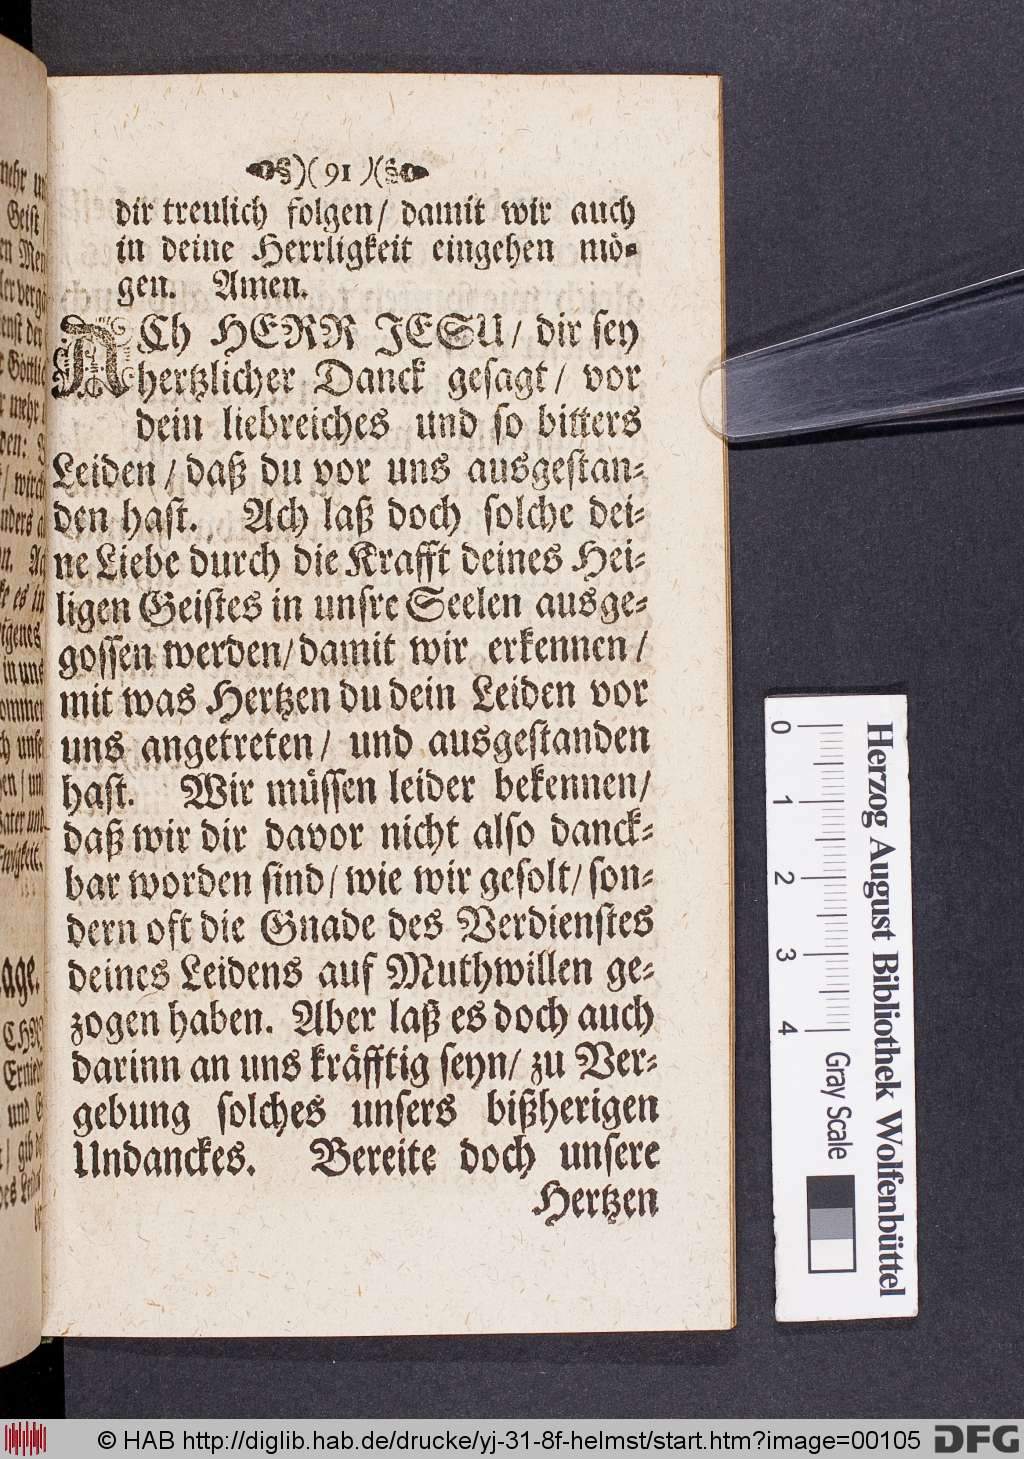 §)( 91 )(§
dir treulich folgen/ damit wir auch
in deine Herrligkeit eingehen mö-
gen. Amen.
ACh HERR JESU/ dir sey
hertzlicher Danck gesagt/ vor
dein liebreiches und so bitters
Leiden/ daß du vor uns ausgestan-
den hast. Ach laß doch solche dei-
ne Liebe durch die Krafft deines Hei-
ligen Geistes in unsre Seelen ausge-
gossen werden/ damit wir erkennen/
mit was Hertzen du dein Leiden vor
uns angetreten/ und ausgestanden
hast. Wir müssen leider bekennen/
daß wir dir davor nicht also danck-
bar worden sind/ wie wir gesolt/ son-
dern oft die Gnade des Verdienstes
deines Leidens auf Muthwillen ge-
zogen haben. Aber laß es doch auch
darinn an uns kräfftig seyn/ zu Ver-
gebung solches unsers bißherigen
Undanckes. Bereite doch unsere
Hertzen
0 1 2 3 4 Gray Scale
Herzog August Bibliothek Wolfenbüttel
© HAB http://diglib.hab.de/drucke/yj-31-8f-helmst/start.htm?image=00105
DFG